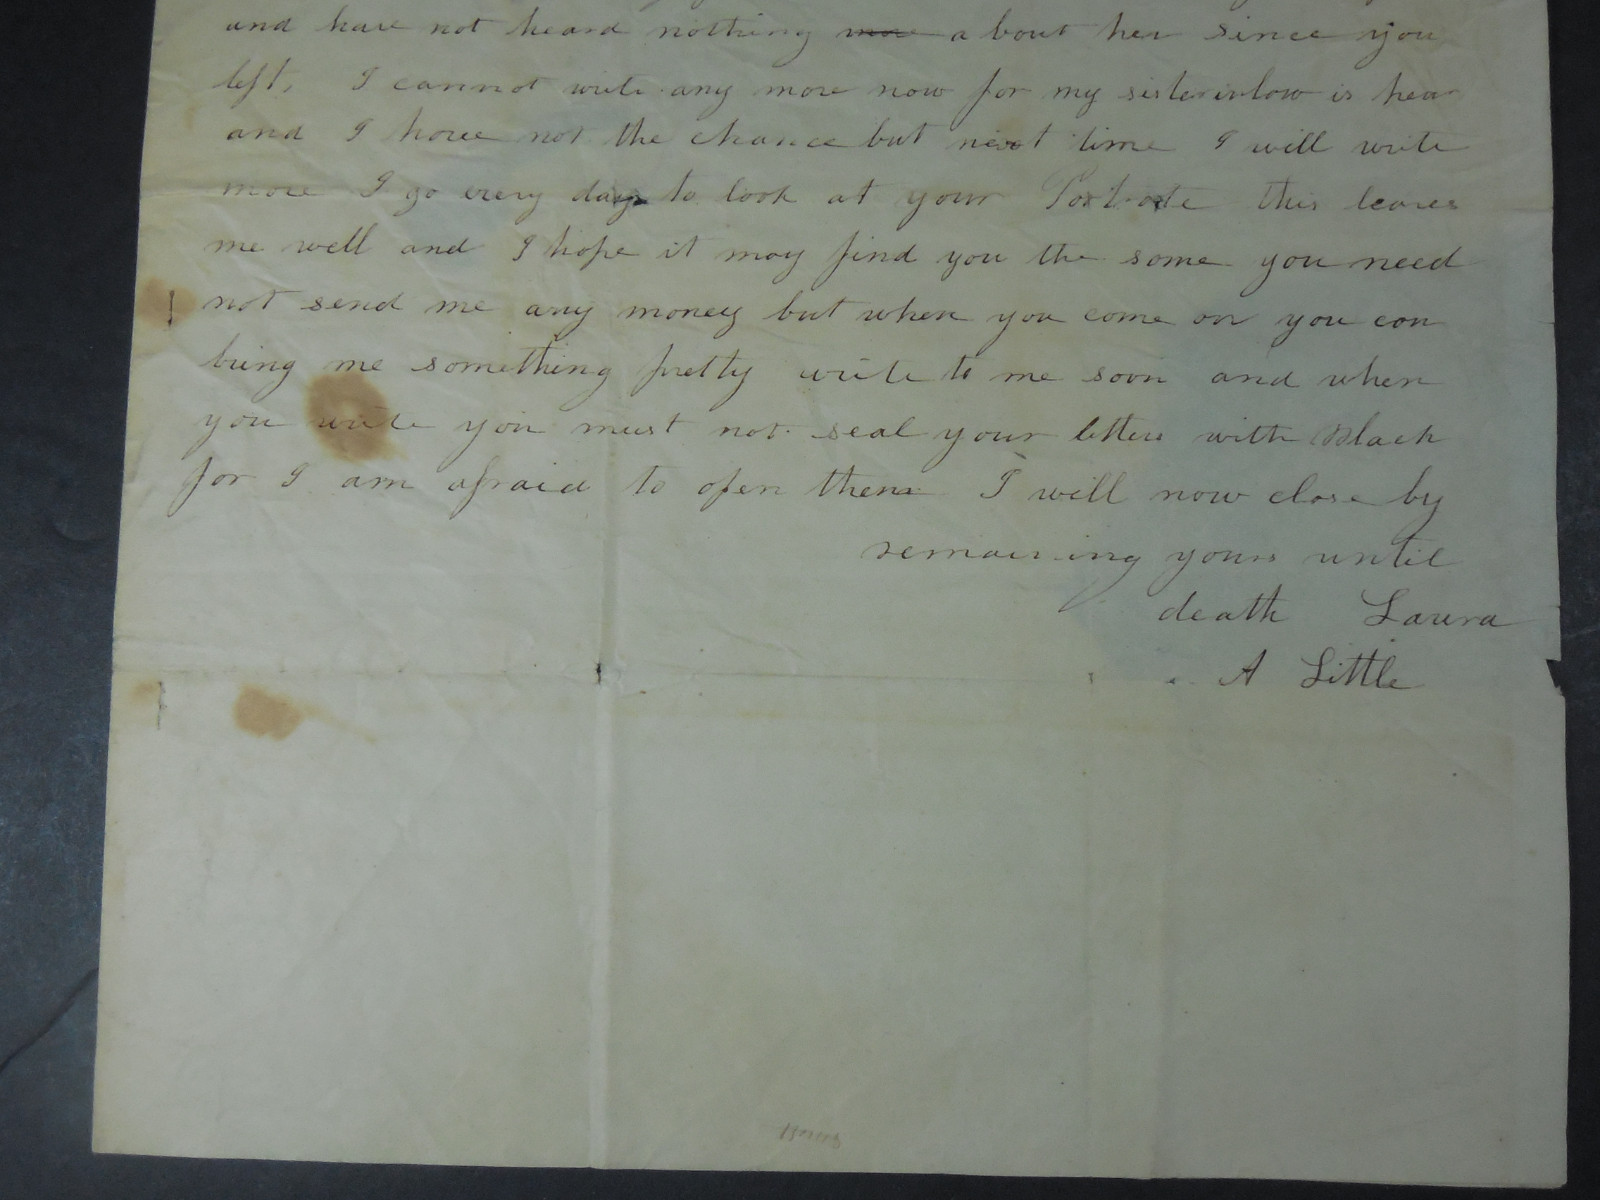 and have not heard nothing more a bout her since you
left, I cannot write any more now for my sisterinlow is hear
and I have not the chance but next time I will write
more I go every day to look at your this leaves
me well and I hope it may find you the some you need
not send me any money but when you come on you con
bring me something pretty write to me soon and when
you write you must not seal your letters with Black
for I am afraid to open them I will now close by
remaining yours until
death Laura
A Little